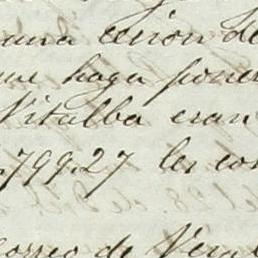 una cesión de
que haga poner
Vitalba eran
.799.27 les co
Correo de Vera